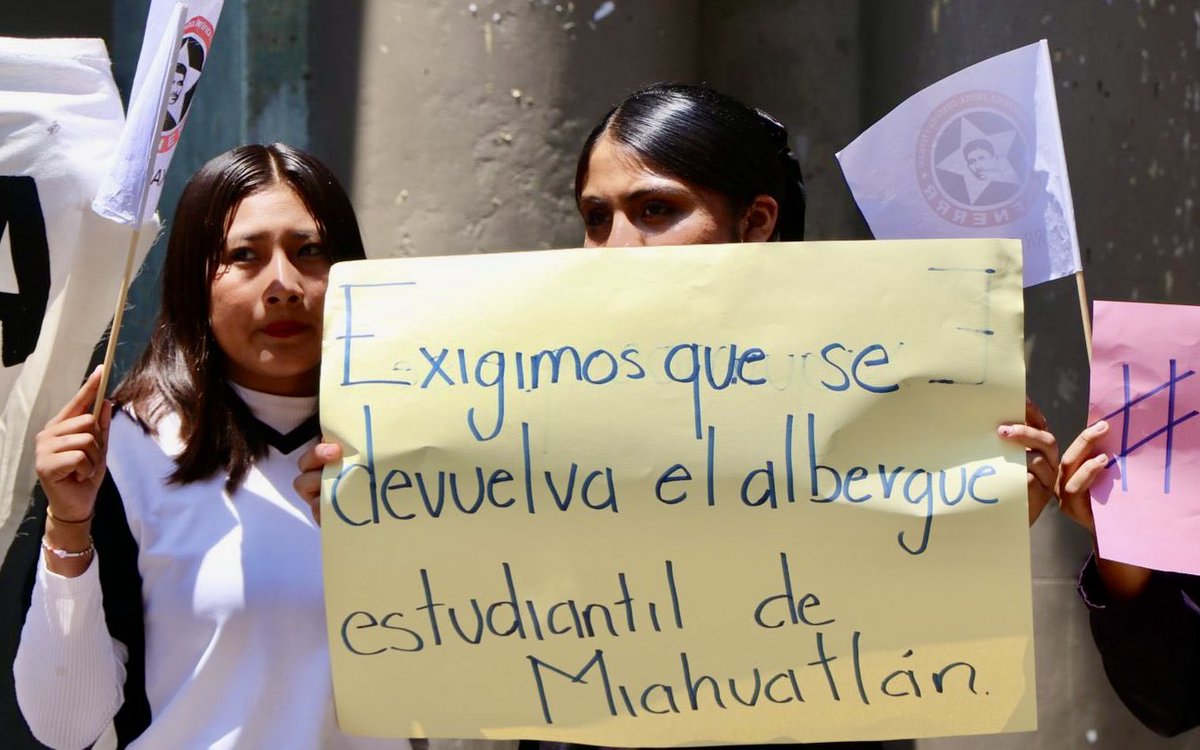 Exigimos que se
devuelva el albergue
estudiantil de
Miahuatlán.
FNERRR
#
A